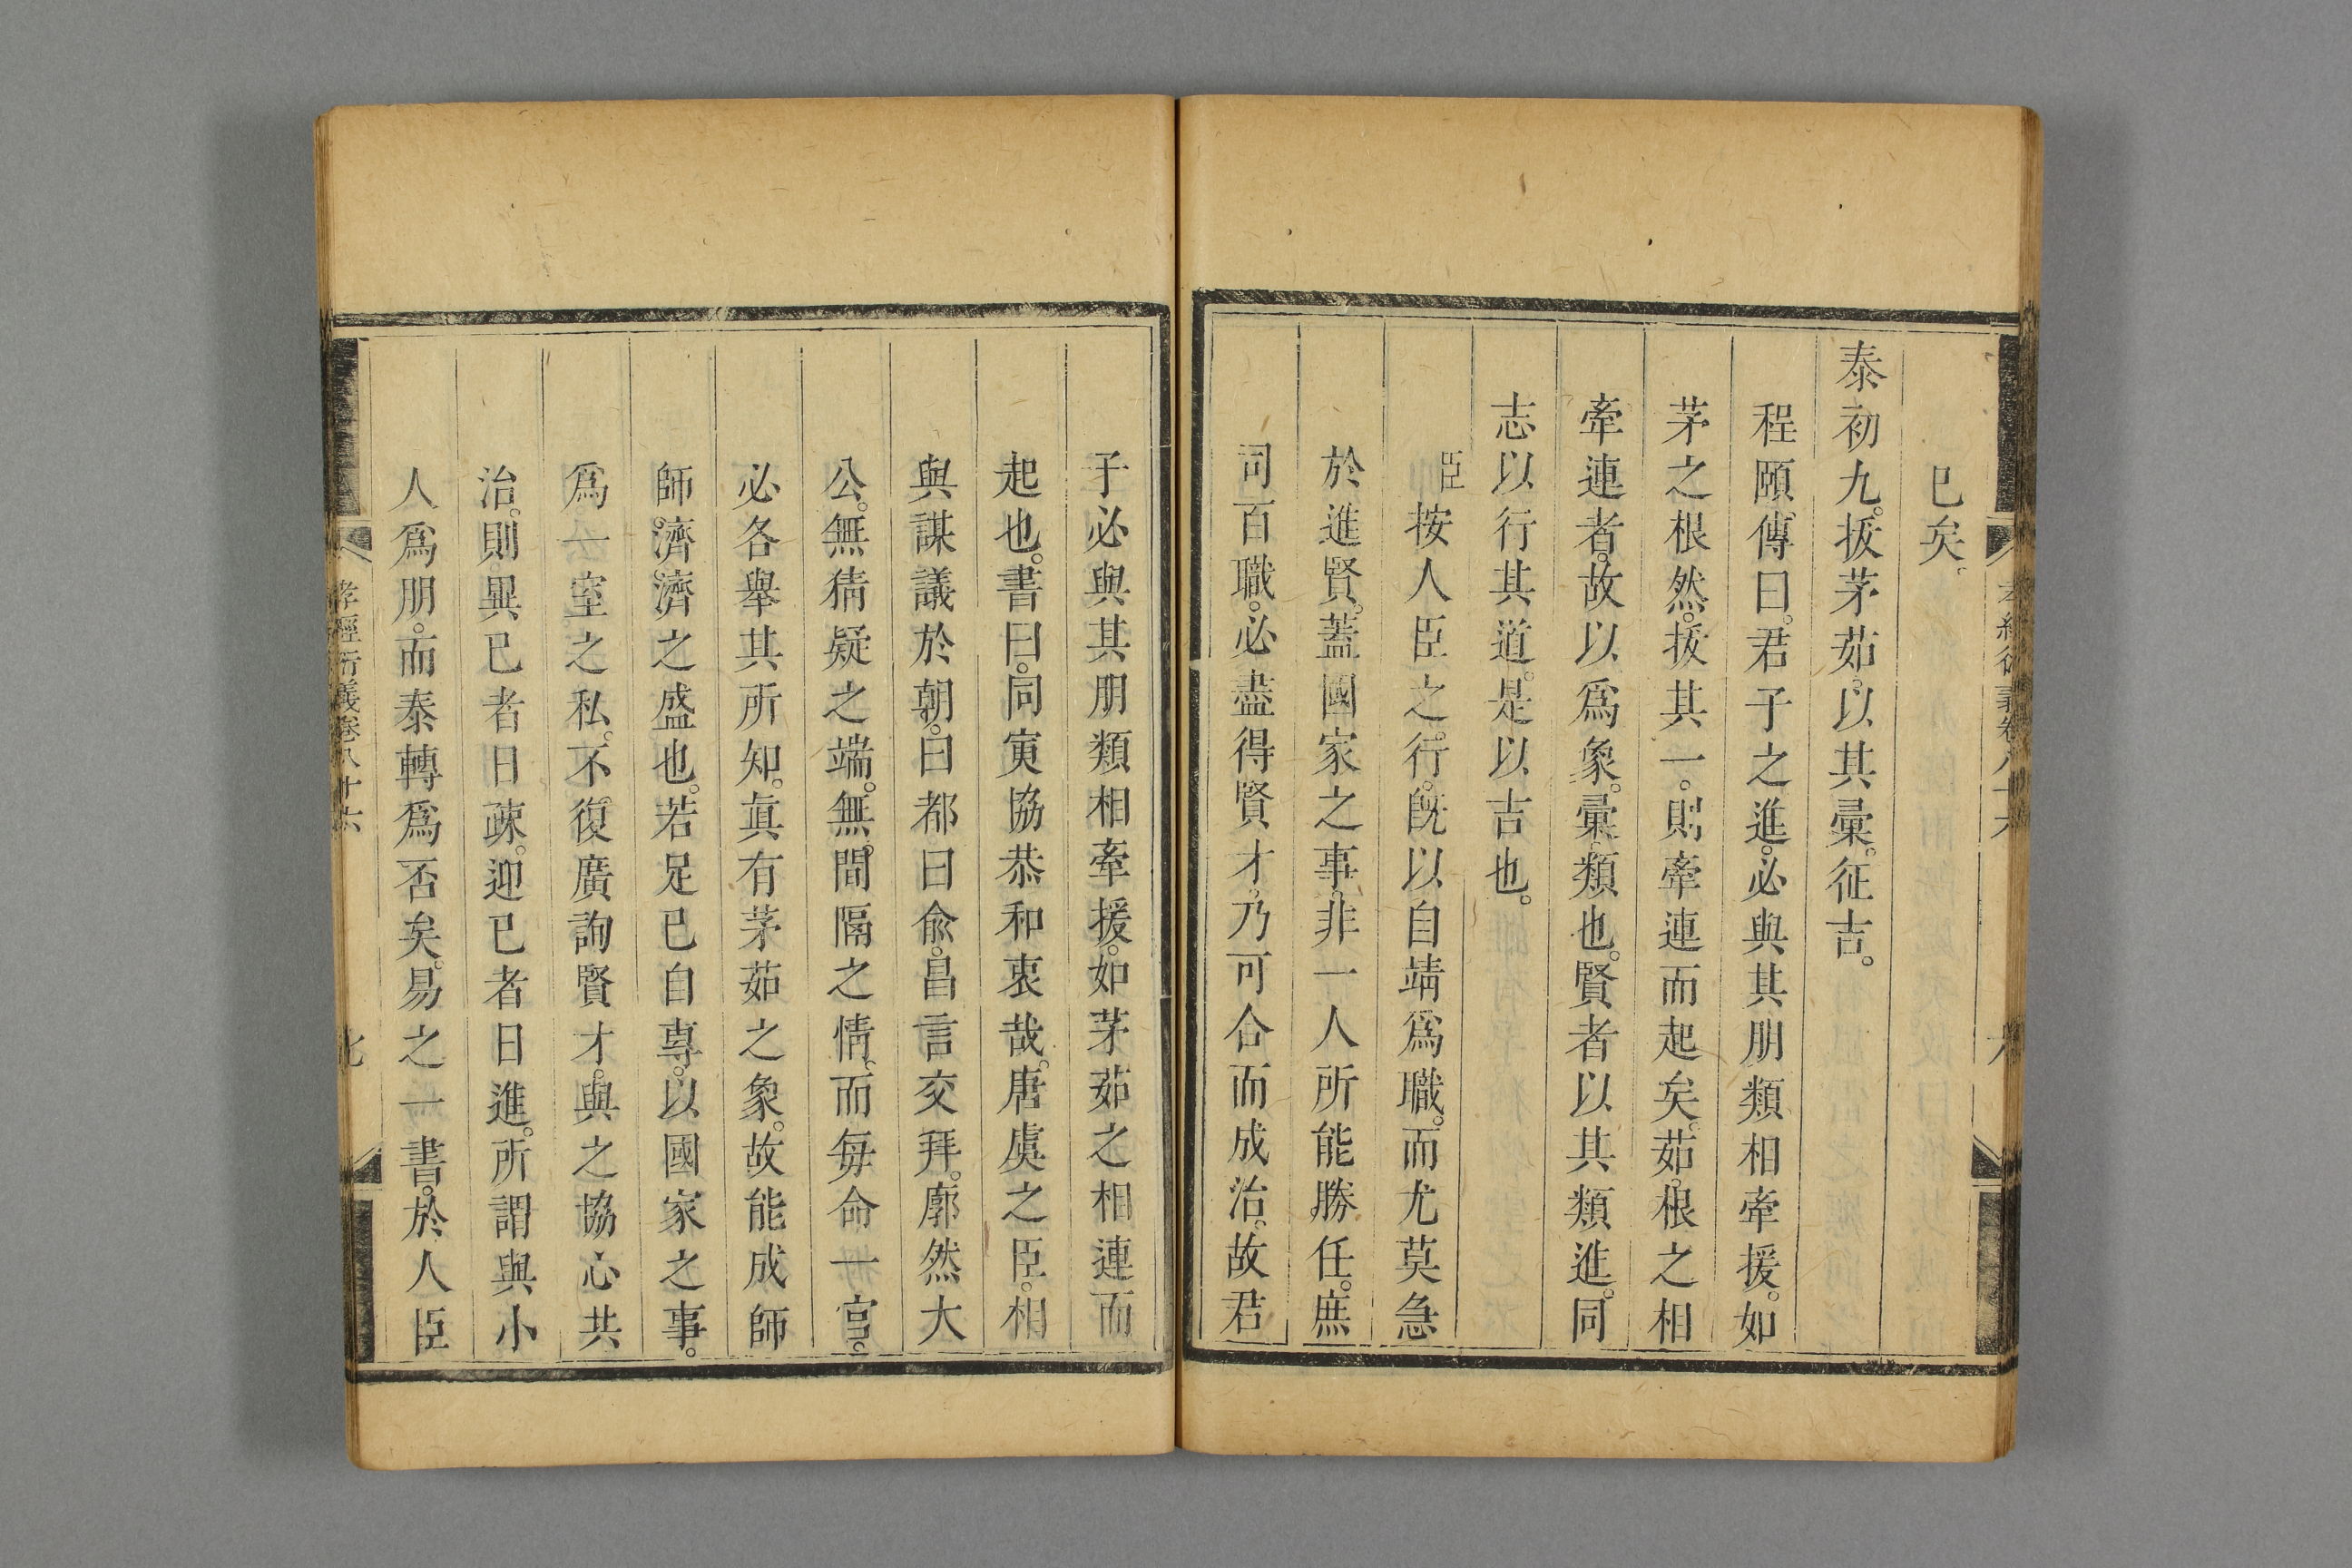 已矣。
泰初九。拔茅茹。以其彙。征吉。
程頤傳曰。君子之進。必與其朋類相牽援。如
茅之根然。拔其一。則牽連而起矣。茹。根之相
牽連者。故以爲象。彙。類也。賢者以其類進。同
志以行其道。是以吉也。
臣按人臣之行。旣以自靖爲職。而尤莫急
於進賢。蓋國家之事。非一人所能勝任。庶
司百職。必盡得賢才。乃可合而成治。故君
子必與其朋類相牽援。如茅茹之相連而
起也。書曰。同寅協恭和衷哉。唐虞之臣。相
與謀議於朝。曰都曰俞。昌言交拜。廓然大
公。無猜疑之端。無間隔之情。而每命一官。
必各舉其所知。眞有茅茹之象。故能成師
師濟濟之盛也。若足已自專。以國家之事。
爲一室之私。不復廣詢賢才。與之協心共
治。則異已者日疎。迎已者日進。所謂與小
人爲朋。而泰轉爲否矣。易之一書。於人臣
孝經衍義卷八十六